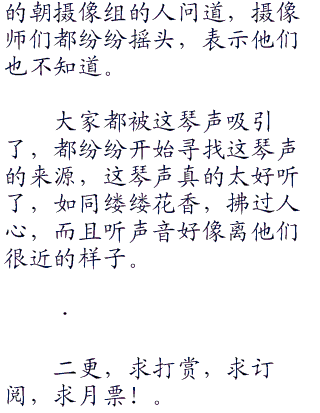 的朝摄像组的人问道，摄像
师们都纷纷摇头，表示他们
也不知道。
大家都被这琴声吸引
了，都纷纷开始寻找这琴声
的来源，这琴声真的太好听
了，如同缕缕花香，拂过人
心，而且听声音好像离他们
很近的样子。
.
二更，求打赏，求订
阅，求月票！。